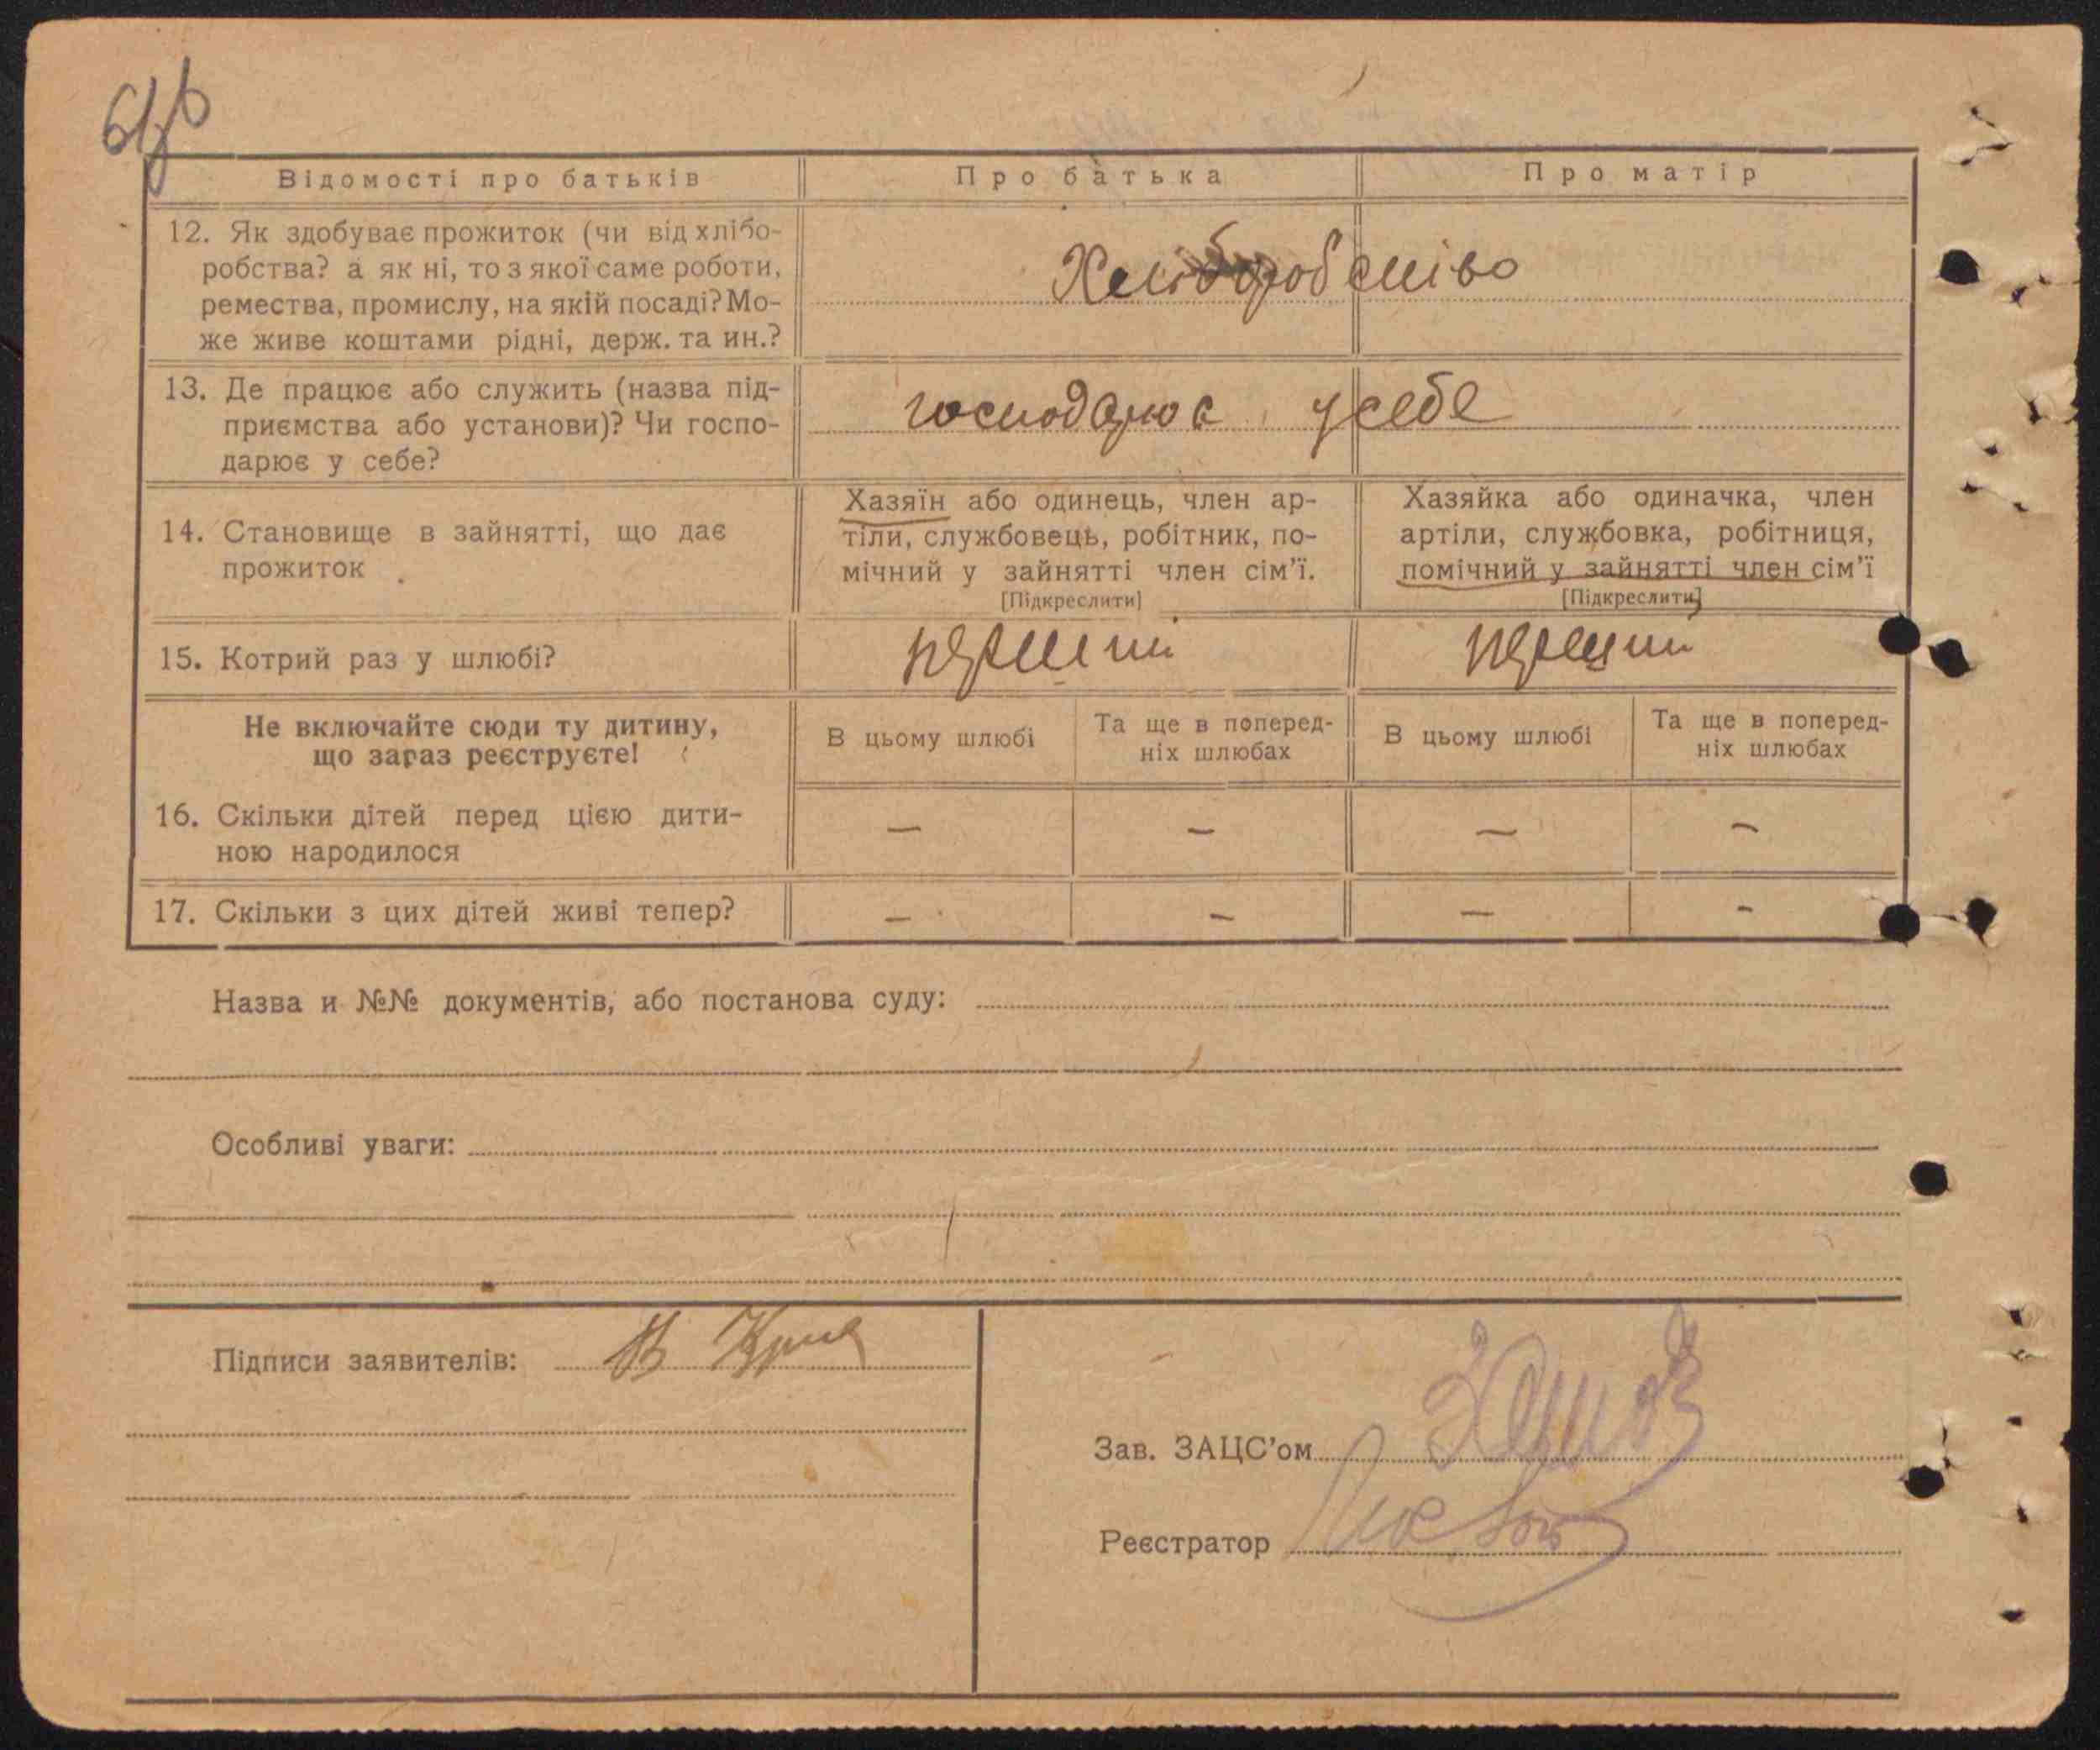 Відомості про батьків Про батька Про матір
12. Як здобуває прожиток (чи від хлібо-
робства? а як ні, то з якої саме роботи,
ремества, промислу, на якій посаді? Мо-
же живе коштами рідні, держ. та ин.?
Хліборобство
13. Де працює або служить (назва під-
приємства або установи)? Чи госпо-
дарює у себе?
господарює у себе
14. Становище в зайнятті, що дає
прожиток
Хазяїн або одинець, член ар-
тіли, службовець, робітник, по-
мічний у зайнятті член сім'ї.
[Підкреслити]
Хазяйка або одиначка, член
артіли, службовка, робітниця,
помічний у зайнятті член сім'ї
[Підкреслити]
15. Котрий раз у шлюбі? перший перший
Не включайте сюди ту дитину,
що зараз реєструєте!
В цьому шлюбі
Та ще в поперед-
ніх шлюбах
В цьому шлюбі
Та ще в поперед-
ніх шлюбах
16. Скільки дітей перед цією дити-
ною народилося
— — — —
17. Скільки з цих дітей живі тепер? — — — -
Назва и №№ документів, або постанова суду:
Особливі уваги:
Підписи заявителів:
Зав. ЗАЦС'ом
Реєстратор